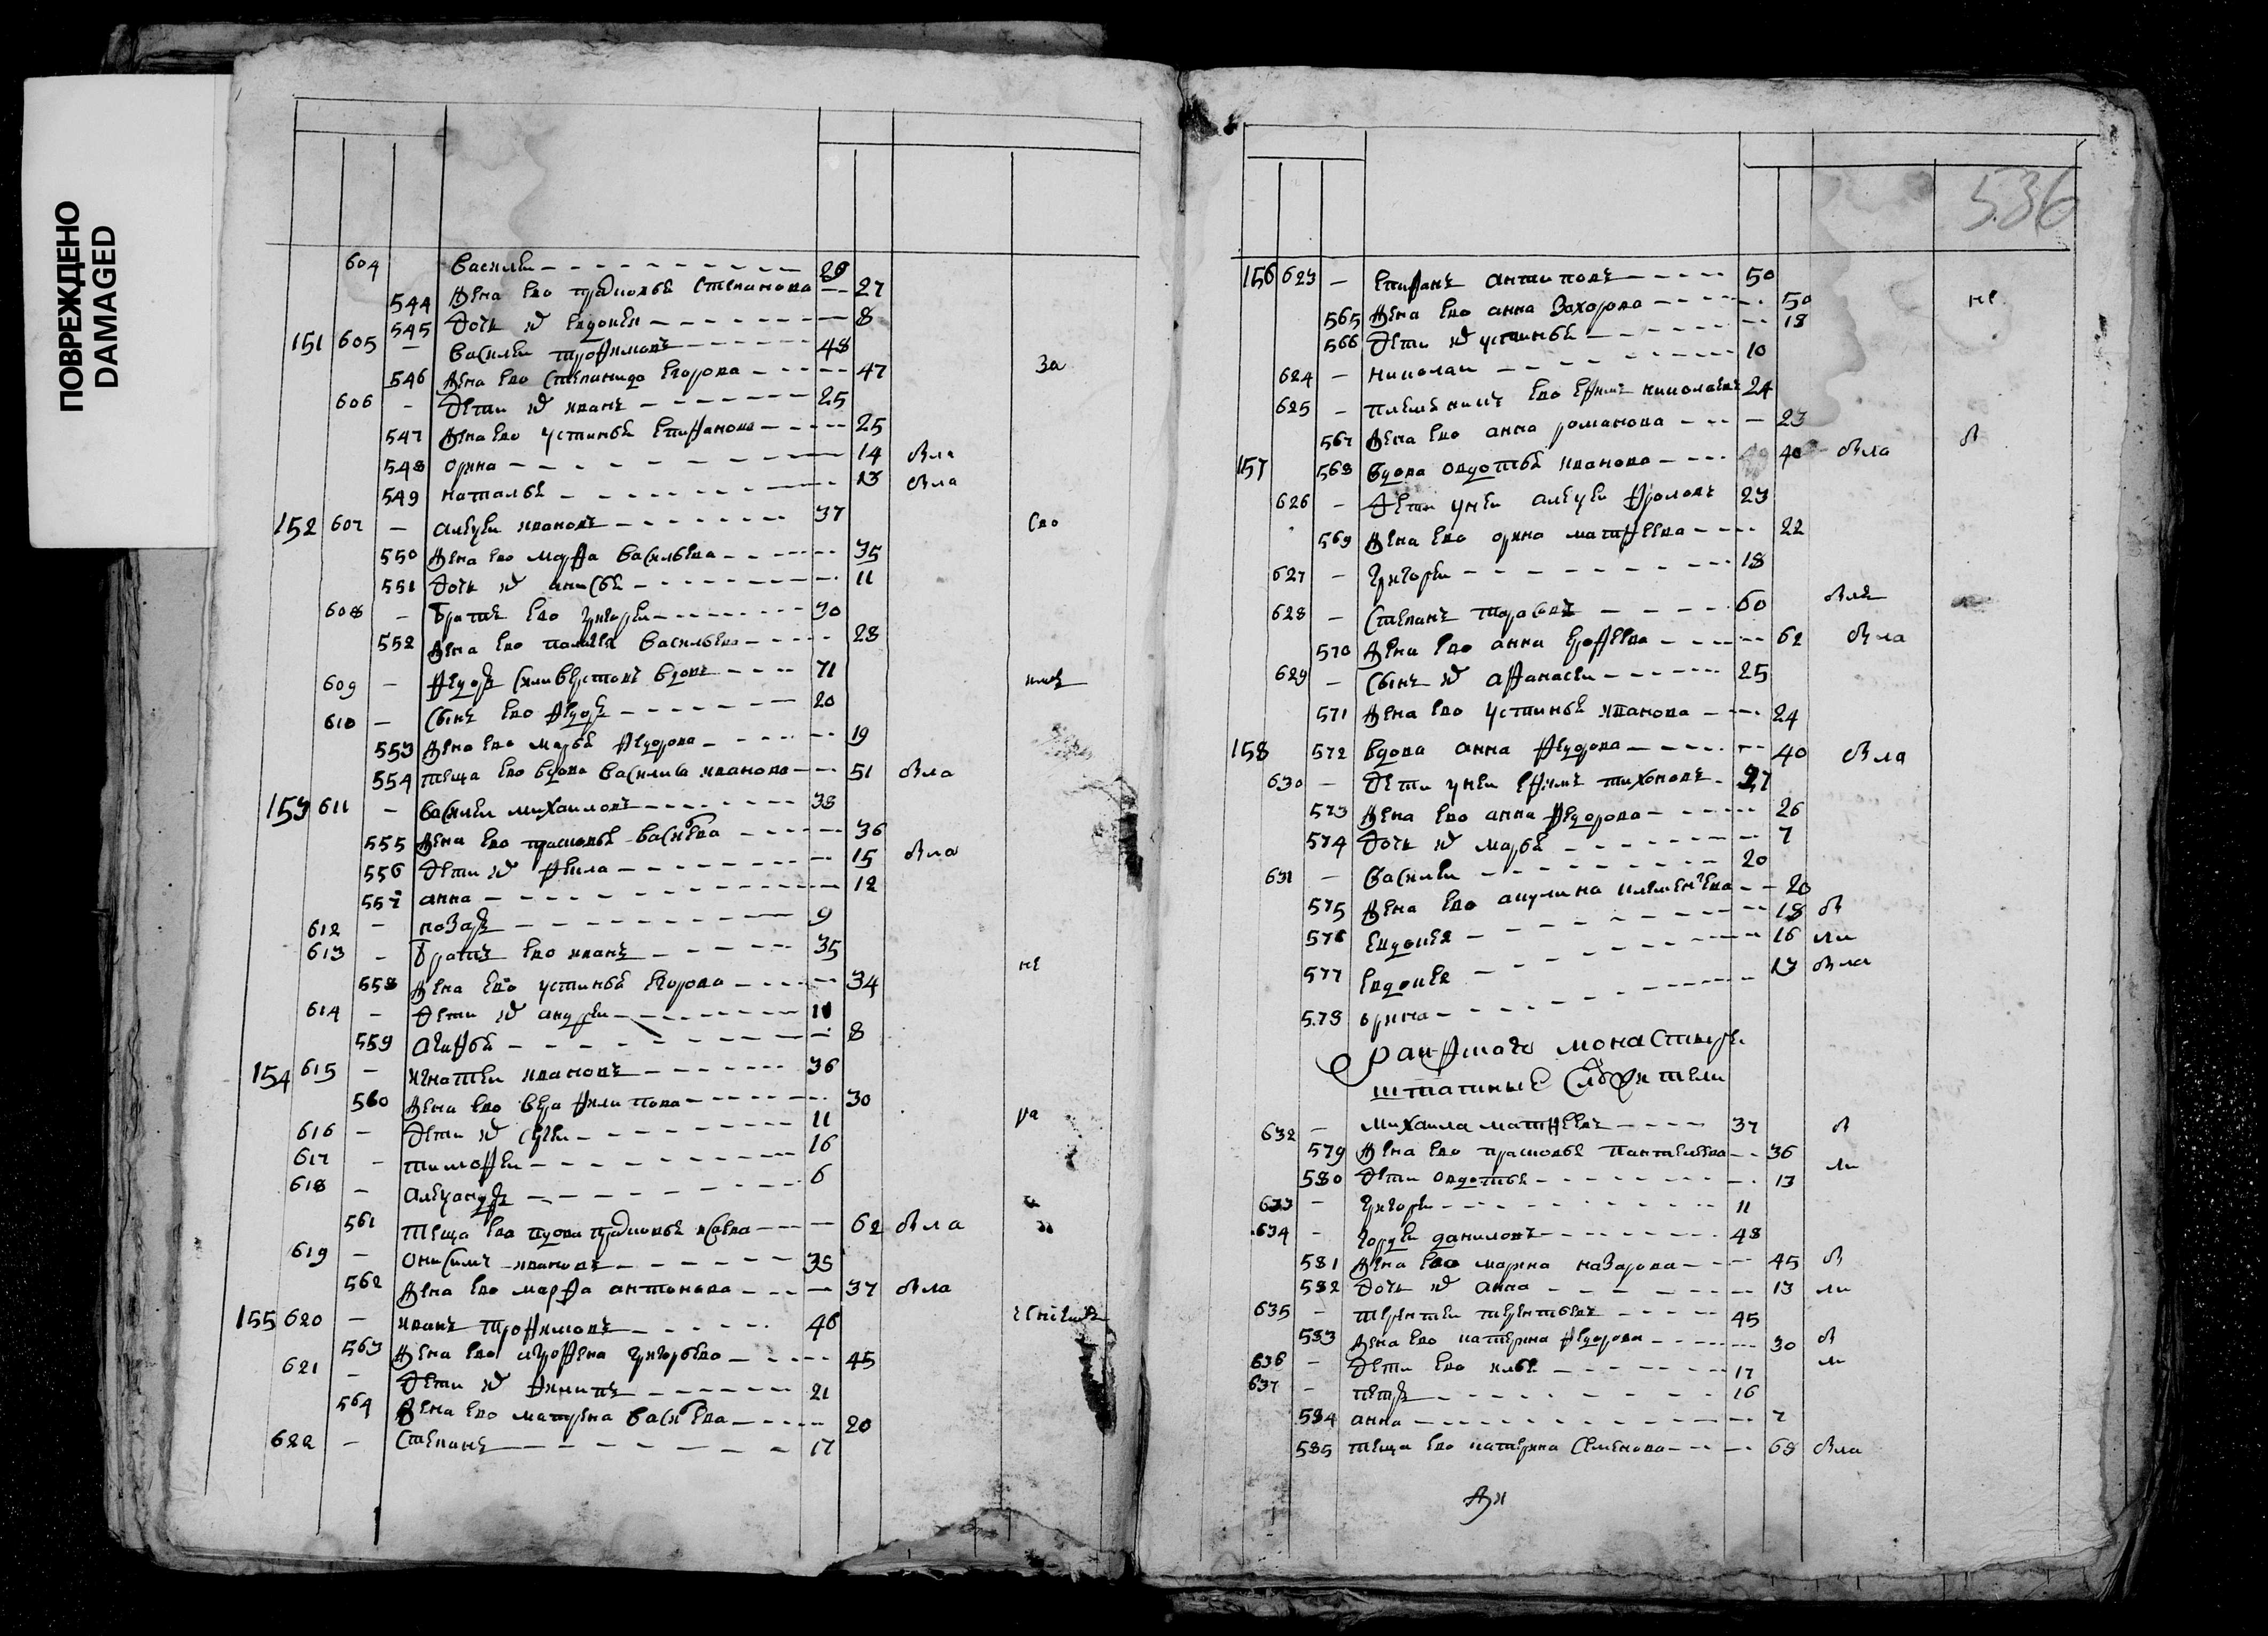 ПОВРЕЖДЕНО
DAMAGED
604 Василеи 29
544 Жена ево прасковья Степанова 27
545 Дочь их Евдокея 8
151 605 - Василеи трофимовъ 48
546 Жена ево Степанида Егорова 47 За
606 - Дети их иванъ 25
547 Жена ево устинья Епифанова 25
548 орина 14 Явла
549 наталья 13 Явла
152 607 - алеѯеи ивановъ 37 Сво
550 Жена ево марфа Васильева 35
551 Дочь их анисья 11
608 - Братъ ево григореи 30
552 Жена ево Васильева 28
609 - Феодоръ Силиверстовъ вдовъ 71
610 - Сынъ ево Феодоръ 20
553 Жена ево марья Феодорова 19
554 теща ево вдова Василиса иванова 51 Явла
153 611 - Василеи михаиловъ 38
555 Жена ево прасковья Васильева 36
556 Дети их Фекла 15 Явла
557 анна 12
612 - назаръ 9
613 - Братъ ево иванъ 35
558 Жена ево устинья Егорова 34 не
614 - Дети их андреи 11
559 агафья 8
154 615 - игнатеи ивановъ 36
560 Жена ево вера Филипова 30
616 - Дети их Сергеи 11 ра
617 - тимофеи 16
618 - алеѯандръ 6
561 Теща ево вдова прасковья исаева 62 Явла
619 - Онисимъ ивановъ 35
562 Жена ево марфа антонова 37 Явла
155 620 - иванъ Трофимовъ 46
563 Жена ево агрофена григорьева 45
621 - Дети их Филипъ 21
564 Жена ево матрена Васильева 20
622 - Степанъ 17
536
156 623 - Епифанъ антиповъ 50
565 Жена ево анна Захорова 50 не
566 Дети их устинья 18
624 - николаи 10
625 - племеникъ ево Ефимъ николаевъ 24
567 Жена ево анна романова 23
157 568 Вдова авдотья иванова 40 Явла Я
626 - Дети у неи алеѯеи Фроловъ 23
569 Жена ево орина матфеева 22
627 - григореи 18
628 - Степанъ 60
570 Жена ево анна Ерофеева 62 Явла
629 - Сынъ их афанасеи 25
571 Жена ево устинья иванова 24
158 572 вдова анна Феодорова 40 Явла
630 - Дети у неи Ефимъ тихоновъ 27
573 Жена ево анна Феодорова 26
574 Дочь их марья 7
631 - Василеи 20
575 Жена ево акулина клементева 20
576 Евдокея 18 Я
577 Евдокея 16 ли
578 орина 13 Явла
раифского монастыря
штатные Служители
632 - михаила матфеевъ 37 Я
579 Жена ево прасковья Пантелеева 36 ли
580 Дети авдотья 13
633 - григореи 11
634 - гордеи даниловъ 48
581 Жена ево марина назарова 45 Я
582 Дочь их анна 13 ли
635 - терентеи терентьевъ 45
583 Жена ево катерина Феодорова 30 Я
636 - Дети ево илья 17 ли
637 - петръ 16
584 анна 7
585 теща ево катерина Семенова 68 Явла